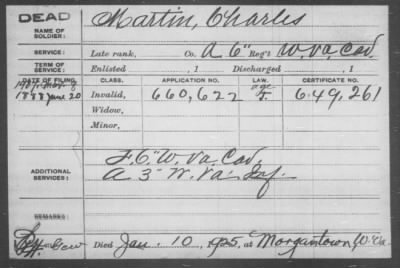 DEAD
NAME OF SOLDIER: Martin, Charles
SERVICE: Late rank, Co. A 6" Reg't W. Va. Cav.
TERM OF SERVICE: Enlisted , 1 Discharged , 1
DATE OF FILING. CLASS. APPLICATION NO. LAW. CERTIFICATE NO.
1888 June 20 Invalid, 660,622 649,261
Widow,
Minor,
F. 6" W. Va. Cav.
ADDITIONAL SERVICES: A 3" W. Va. Inf.
REMARKS:
Died Jan. 10, 1925, at Morgantown W. Va.